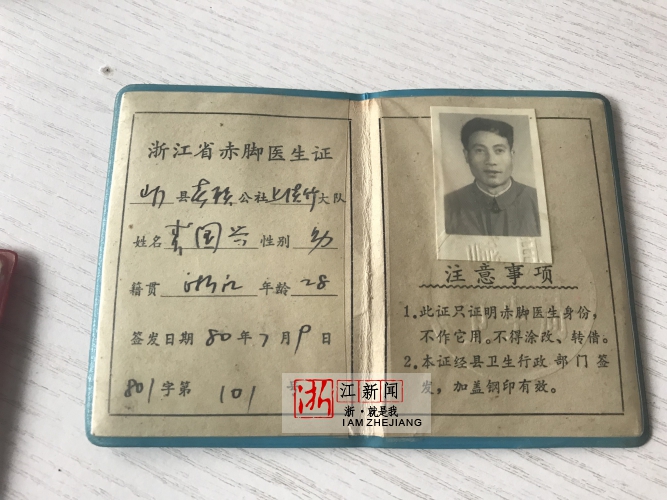 浙江省赤脚医生证
县 公社 大队
姓名 国兴 性别 男
籍贯 浙江 年龄 28
签发日期 80年7月9日
801字第 101 号
注意事项
1.此证只证明赤脚医生身份,
不作它用。不得涂改、转借。
2.本证经县卫生行政部门签
发,加盖钢印有效。
浙江新闻
浙·就是我
I AM ZHEJIANG